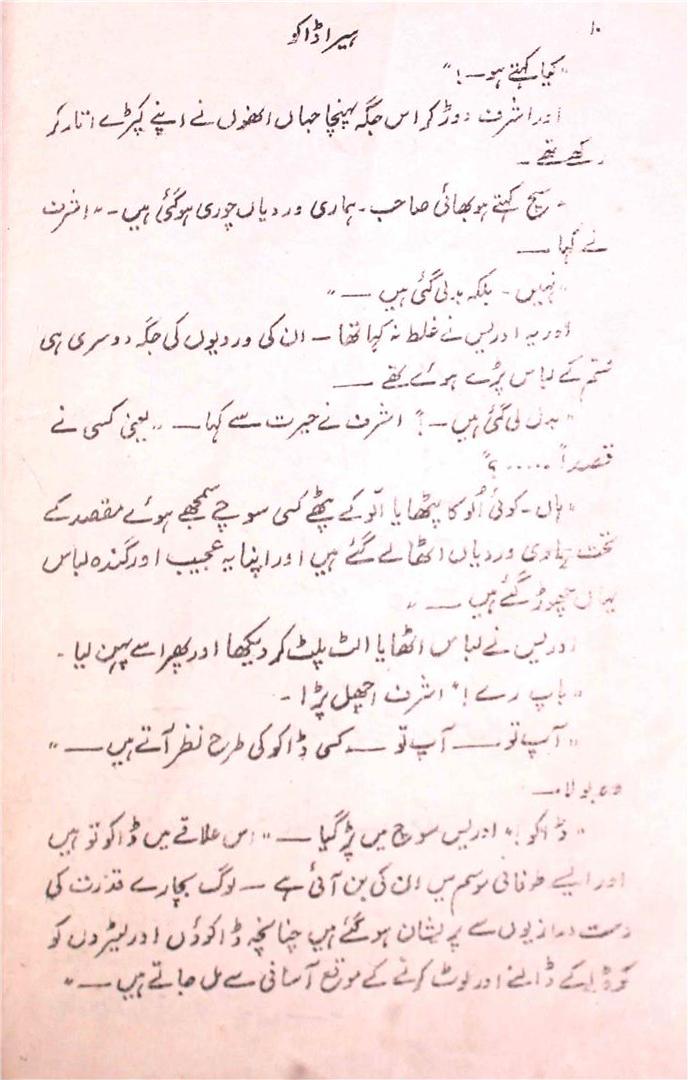 ۱۰
ہیرا ڈاکو
"کیا کہتے ہو—!"
اور اشرف دوڑ کر اس جگہ پہنچا جہاں انھوں نے اپنے کپڑے اتار کر
رکھے تھے۔
"سچ کہتے ہو بھائی صاحب۔ ہماری وردیاں چوری ہو گئی ہیں۔" اشرف
نے کہا —
"نہیں۔ بلکہ بدلی گئی ہیں —"
اور یہ ادریس نے غلط نہ کہا تھا — ان کی وردیوں کی جگہ دوسری ہی
قسم کے لباس پڑے ہوئے تھے —
"بدل لی گئی ہیں —؟" اشرف نے حیرت سے کہا — "یعنی کسی نے
قصداً .....؟"
"ہاں۔ کوئی اُلو کا پٹھا یا اُلو کے پٹھے کسی سوچے سمجھے ہوئے مقصد کے
تحت ہماری وردیاں اٹھا لے گئے ہیں اور اپنا یہ عجیب اور گندہ لباس
یہاں چھوڑ گئے ہیں —"
ادریس نے لباس اٹھایا الٹ پلٹ کر دیکھا اور پھر اسے پہن لیا۔
"باپ رے!" اشرف اچھل پڑا۔
"آپ تو — آپ تو — کسی ڈاکو کی طرح نظر آتے ہیں —"
وہ بولا —
"ڈاکو!" ادریس سوچ میں پڑ گیا — "اس علاقے میں ڈاکو تو ہیں
اور ایسے طوفانی موسم میں ان کی بن آئی ہے — لوگ بچارے قدرت کی
دست درازیوں سے پریشان ہو گئے ہیں چنانچہ ڈاکوؤں اور لیٹروں کو
ڈالنے اور لوٹ کرنے کے موقع آسانی سے مل جاتے ہیں —"